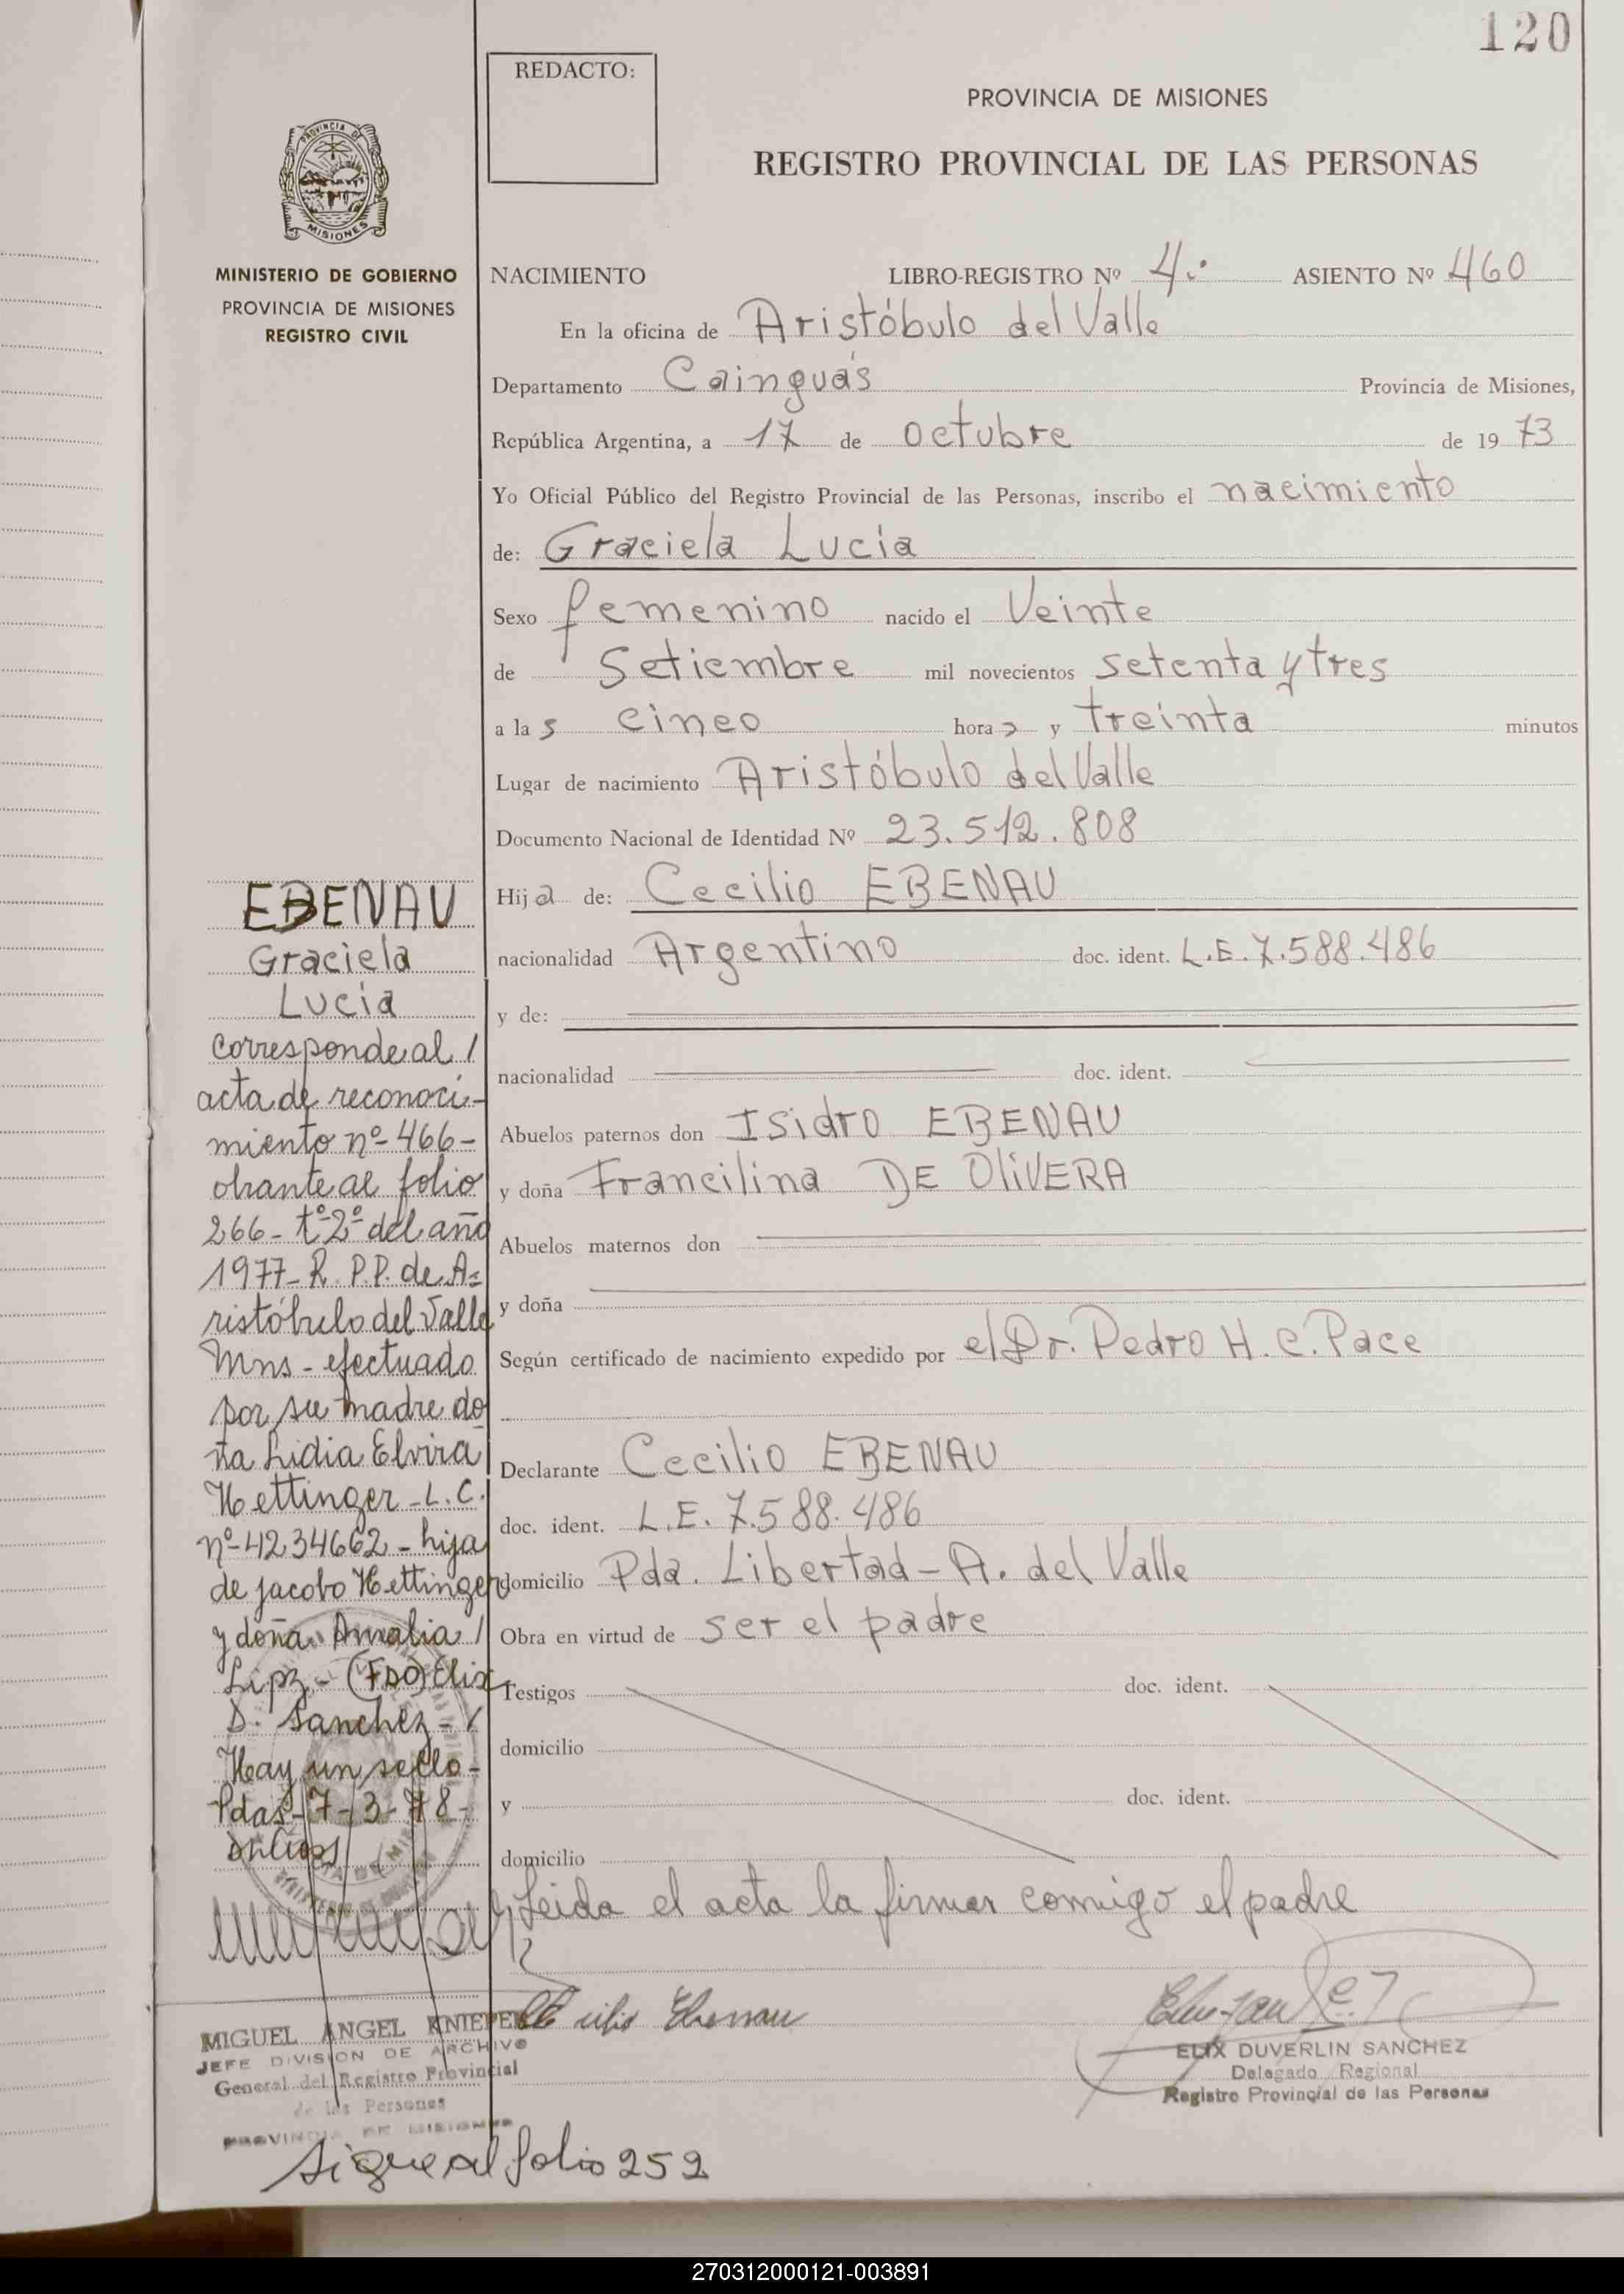 120
REDACTO:
PROVINCIA DE MISIONES
REGISTRO PROVINCIAL DE LAS PERSONAS
PROVINCIA DE
MISIONES
MINISTERIO DE GOBIERNO
PROVINCIA DE MISIONES
REGISTRO CIVIL
NACIMIENTO LIBRO-REGISTRO Nº 4.º ASIENTO Nº 460
En la oficina de Aristóbulo del Valle
Departamento Cainguás Provincia de Misiones,
República Argentina, a 17 de octubre de 19 73
Yo Oficial Público del Registro Provincial de las Personas, inscribo el nacimiento
de: Graciela Lucía
Sexo femenino nacido el Veinte
de Setiembre mil novecientos setenta y tres
a las cinco horas y treinta minutos
Lugar de nacimiento Aristóbulo del Valle
Documento Nacional de Identidad Nº 23.512.808
Hija de: Cecilio EBENAU
nacionalidad Argentino doc. ident. L.E. 7.588.486
y de:
nacionalidad doc. ident.
Abuelos paternos don Isidro EBENAU
y doña Francilina DE OliVERA
Abuelos maternos don
y doña
Según certificado de nacimiento expedido por el Dr. Pedro H. C. Pace
Declarante Cecilio EBENAU
doc. ident. L.E. 7.588.486
domicilio Pda. Libertad - A. del Valle
Obra en virtud de ser el padre
Testigos doc. ident.
domicilio
y doc. ident.
domicilio
Leida el acta la firman comigo el padre
Cecilio Ebenau
ELIX DUVERLIN SANCHEZ
Delegado Regional
Registro Provincial de las Personas
EBENAU
Graciela
Lucía
corresponde al /
acta de reconoci-
miento nº- 466-
obrante al folio
266- tº-2º del año
1977- R. P.P. de A=
ristóbulo del Valle
Mns - efectuado
por su madre do
ña Lidia Elvira
Hettinger - L.C.
nº-4234662 - hija
de Jacobo Hettinger
y doña Amalia /
Lipz - (FDO) Elix
D. Sanchez - /
Hay un sello -
Pdas - 7-3-78-
MIGUEL ANGEL KNIEPER
JEFE DIVISION DE ARCHIVO
General del Registro Provincial
de las Personas
PROVINCIA DE MISIONES
Sigue al folio 252
270312000121-003891